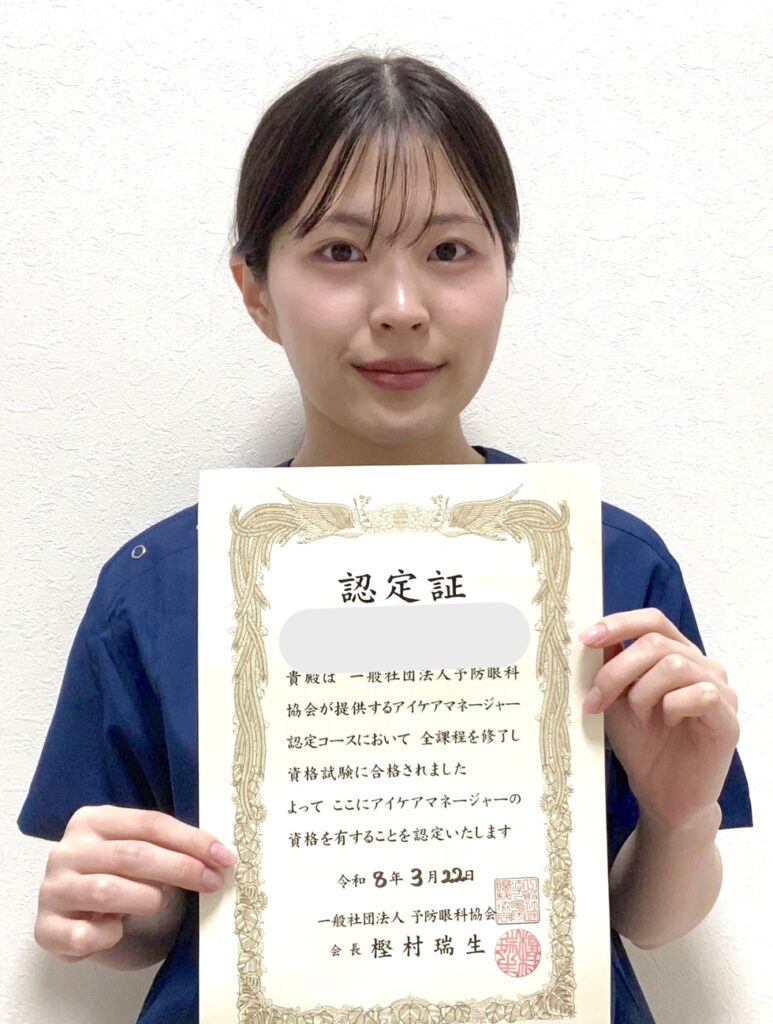 認定証
貴殿は 一般社団法人予防眼科
協会が提供するアイケアマネージャー
認定コースにおいて 全課程を修了し
資格試験に合格されました
よって ここにアイケアマネージャーの
資格を有することを認定いたします
令和 8年 3月22日
一般社団法人 予防眼科協会
会長 樫村瑞生